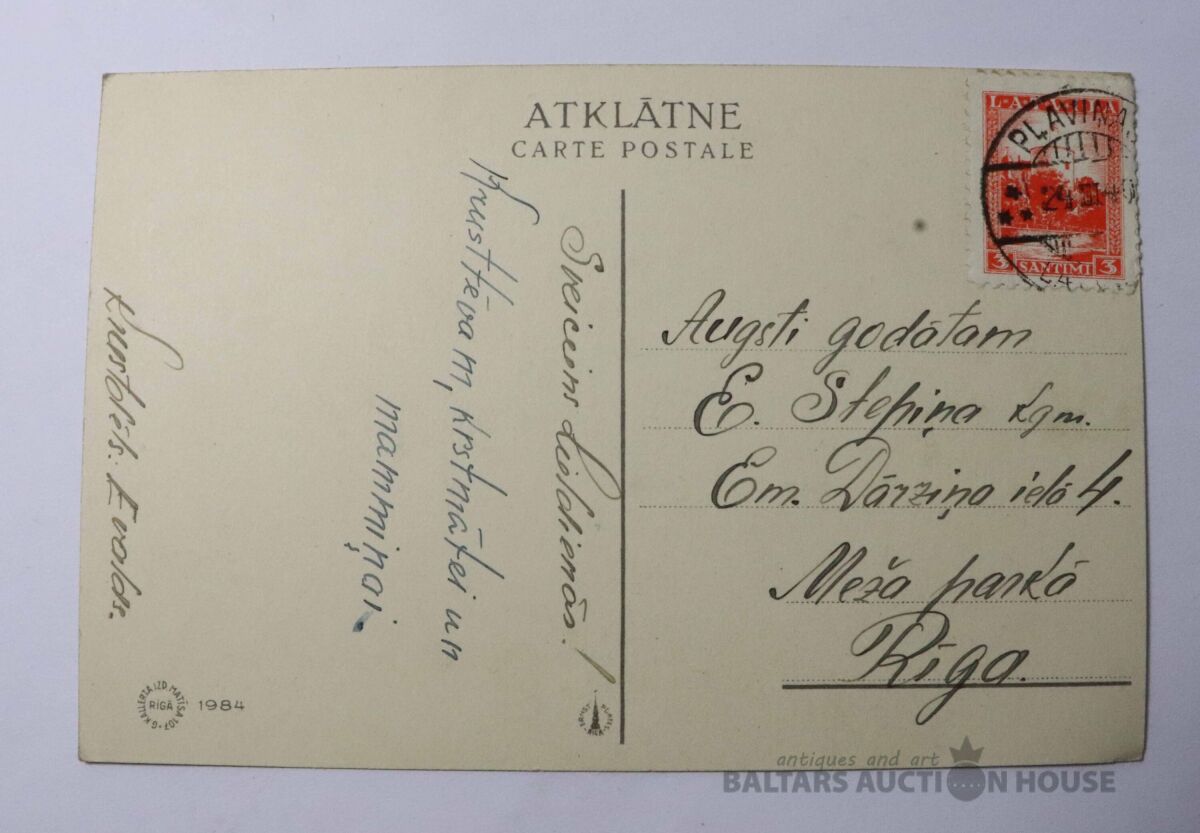 ATKLĀTNE
CARTE POSTALE
LATVIJA
3 SANTIMI 3
PĻAVIŅAS
Sveiciens Lieldienās!
Krusttēvam, krstmātei un
mammiņai.
Krustdēls: Evalds.
Augsti godātam
E. Stepiņa kgm.
Em. Dārziņa ielā 4.
Meža parkā
Rīga.
G. KALLERTA IZD. MATĪSA 107
RĪGĀ
1984
antiques and art
BALTARS AUCTION HOUSE